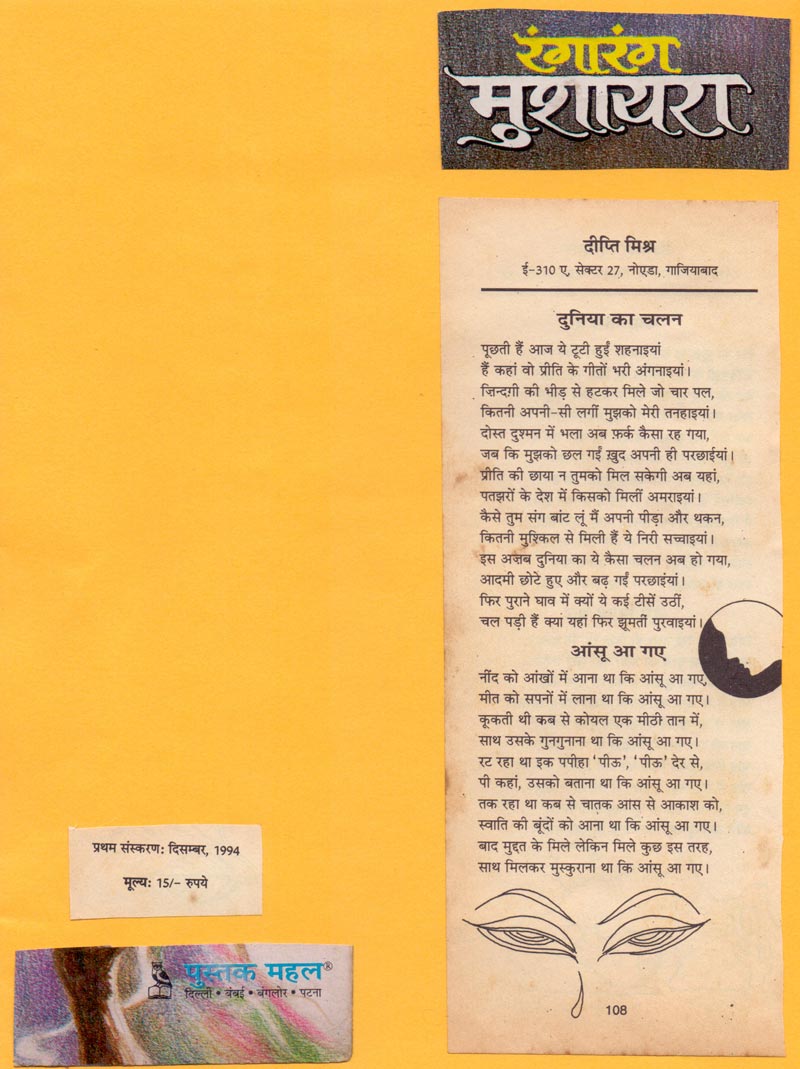 रंगारंग
मुशायरा
दीप्ति मिश्र
ई-310 ए, सेक्टर 27, नोएडा, गाजियाबाद
दुनिया का चलन
पूछती हैं आज ये टूटी हुईं शहनाइयां
हैं कहां वो प्रीति के गीतों भरी अंगनाइयां।
ज़िन्दग़ी की भीड़ से हटकर मिले जो चार पल,
कितनी अपनी-सी लगीं मुझको मेरी तनहाइयां।
दोस्त दुश्मन में भला अब फ़र्क कैसा रह गया,
जब कि मुझको छल गईं ख़ुद अपनी ही परछाईयां।
प्रीति की छाया न तुमको मिल सकेगी अब यहां,
पतझरों के देश में किसको मिलीं अमराइयां।
कैसे तुम संग बांट लूं मैं अपनी पीड़ा और थकन,
कितनी मुश्किल से मिली हैं ये निरी सच्चाइयां।
इस अजब दुनिया का ये कैसा चलन अब हो गया,
आदमी छोटे हुए और बढ़ गईं परछाइंयां।
फिर पुराने घाव में क्यों ये कई टीसें उठीं,
चल पड़ी हैं क्या यहां फिर झूमतीं पुरवाइयां।
आंसू आ गए
नींद को आंखों में आना था कि आंसू आ गए,
मीत को सपनों में लाना था कि आंसू आ गए।
कूकती थी कब से कोयल एक मीठी तान में,
साथ उसके गुनगुनाना था कि आंसू आ गए।
रट रहा था इक पपीहा ‘पीऊ’, ‘पीऊ’ देर से,
पी कहां, उसको बताना था कि आंसू आ गए।
तक रहा था कब से चातक आंस से आकाश को,
स्वाति की बूंदों को आना था कि आंसू आ गए।
बाद मुद्दत के मिले लेकिन मिले कुछ इस तरह,
साथ मिलकर मुस्कुराना था कि आंसू आ गए।
108
प्रथम संस्करण: दिसम्बर, 1994
मूल्य: 15/- रुपये
पुस्तक महल®
दिल्ली • बंबई • बंगलोर • पटना